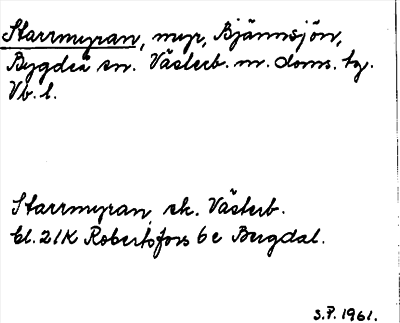 Starrmyran, myr, Bjännsjön,
Bygdeå sn. Västerb. m. doms. tg.
Vb. l.
Starrmyran, sk. Västerb.
bl. 21K Robertsfors 6 c Bergdal.
S.P. 1961.